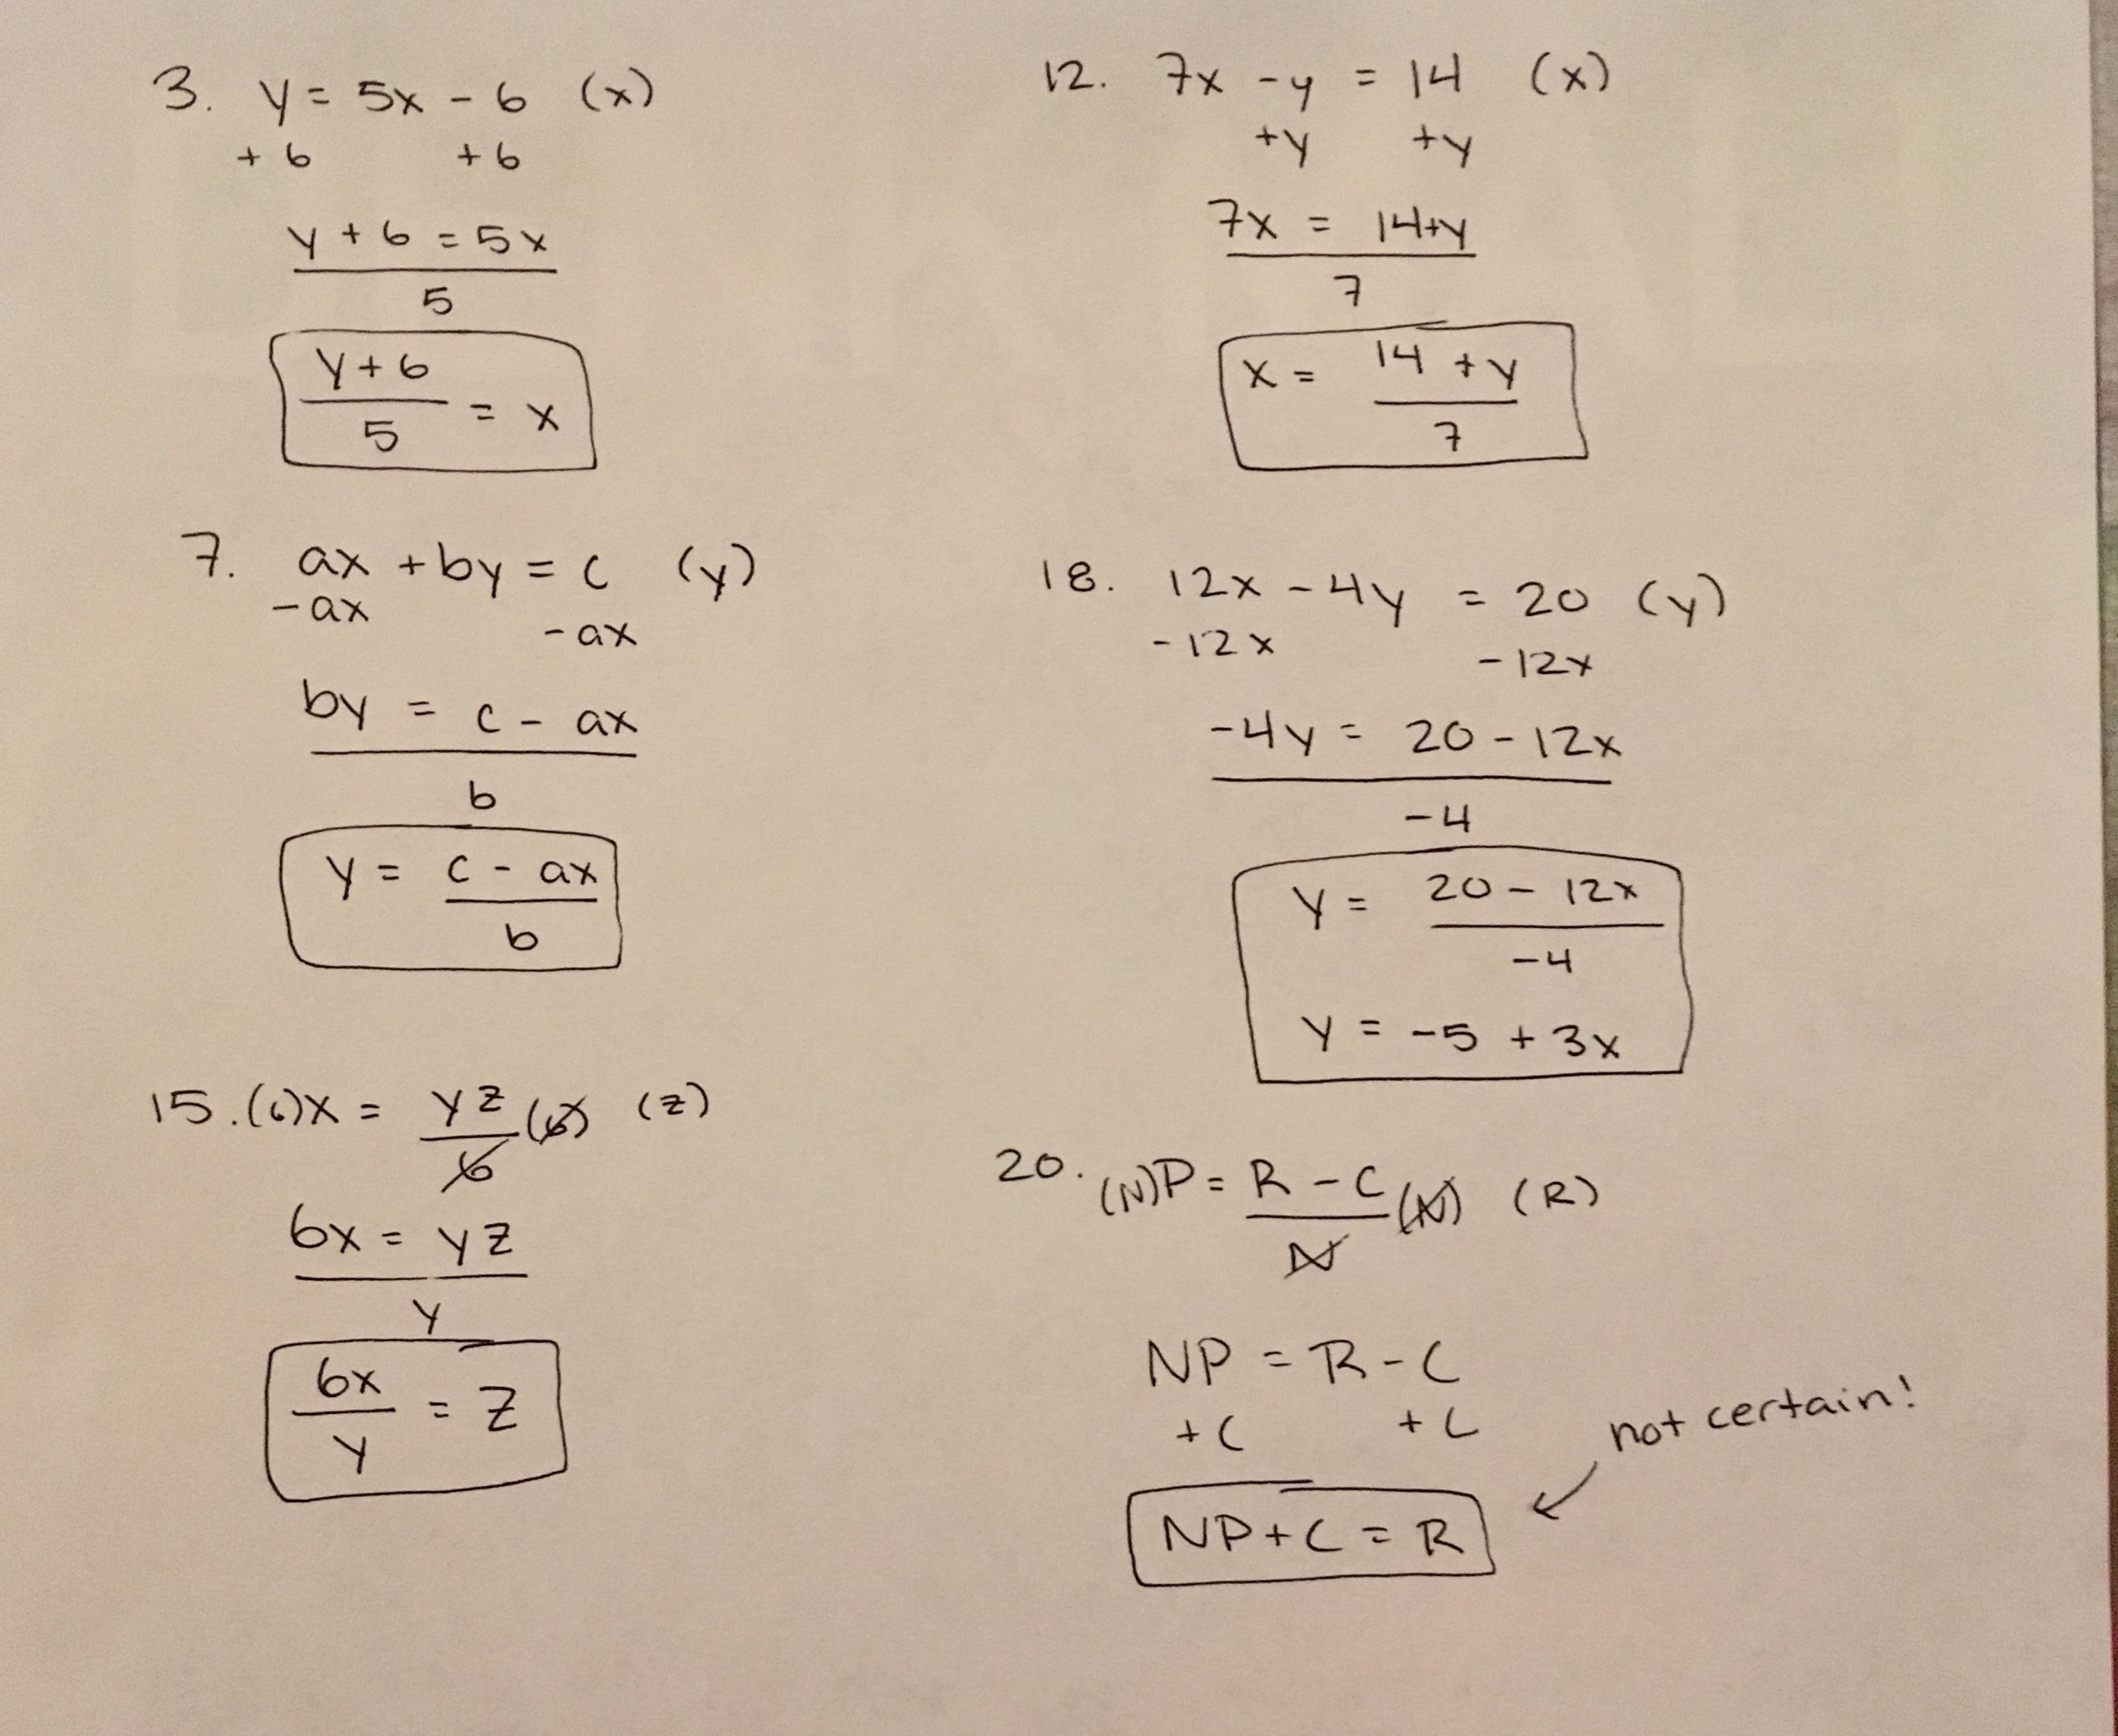 3. y = 5x - 6 (x)
+6 +6
y + 6 = 5x
5
y + 6
5 = x
7. ax + by = c (y)
-ax
-ax
by = c - ax
b
y = c - ax
b
15. (6)x = yz (6) (z)
6
6x = yz
y
6x
y = z
12. 7x - y = 14 (x)
+y +y
7x = 14+y
7
x = 14 + y
7
18. 12x - 4y = 20 (y)
-12x
-12x
-4y = 20 - 12x
-4
y = 20 - 12x
-4
y = -5 + 3x
20. (N)P = R - C (N) (R)
N
NP = R - C
+C +C
not certain!
NP + C = R